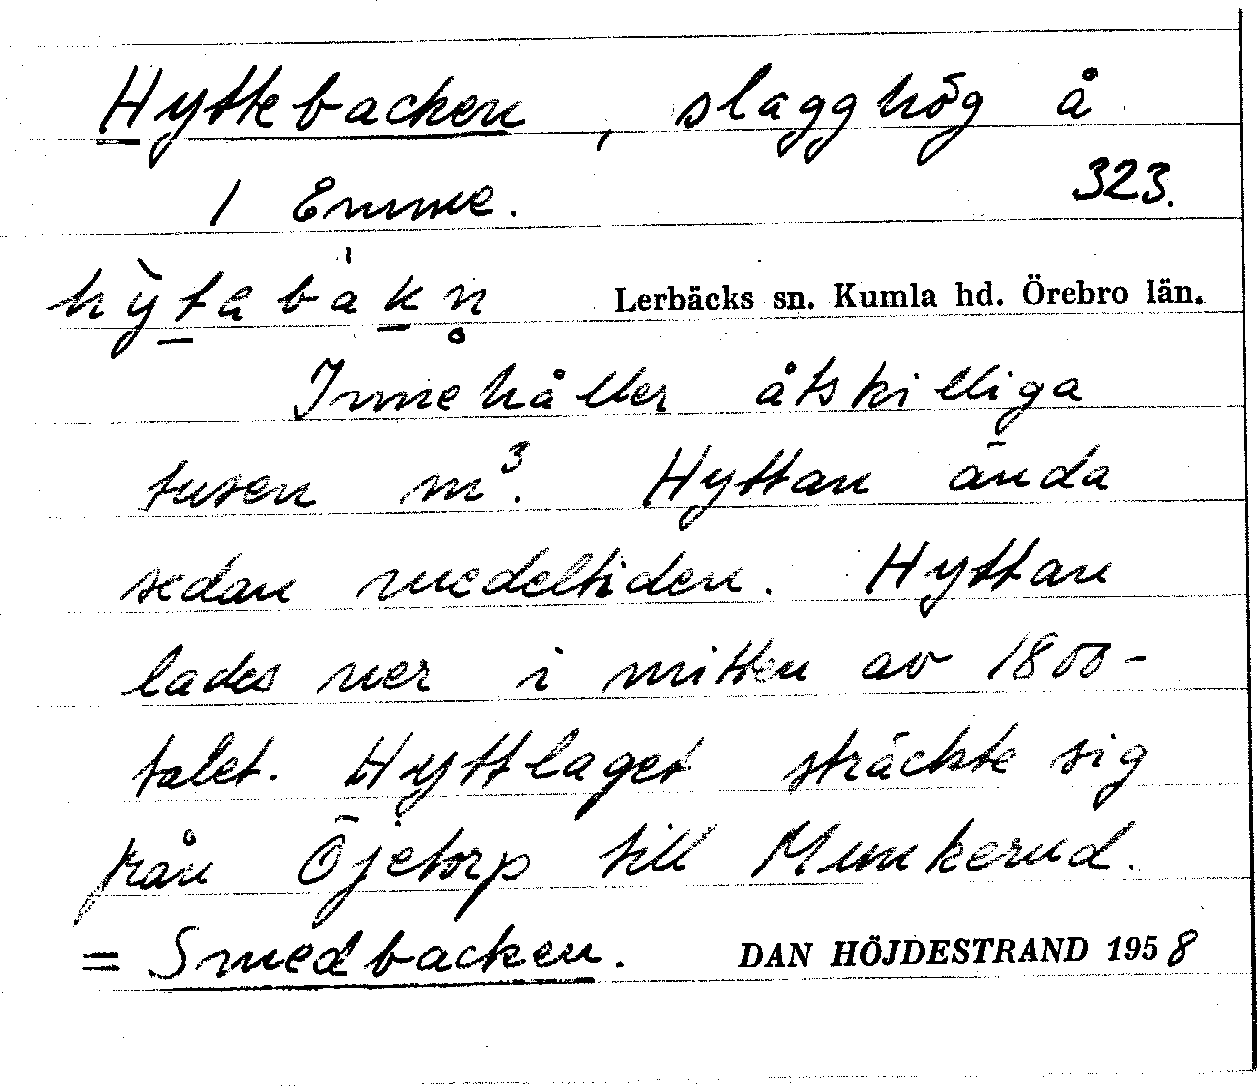 Hyttebacken, slagghög å
1 Emme. 323.
hỳtabàkn̥
Lerbäcks sn. Kumla hd. Örebro län.
Innehåller åtskilliga
tusen m³. Hyttan ända
sedan medeltiden. Hyttan
lades ner i mitten av 1800-
talet. Hyttlaget sträckte sig
från Öjetorp till Munkerud.
= Smedbacken. DAN HÖJDESTRAND 1958